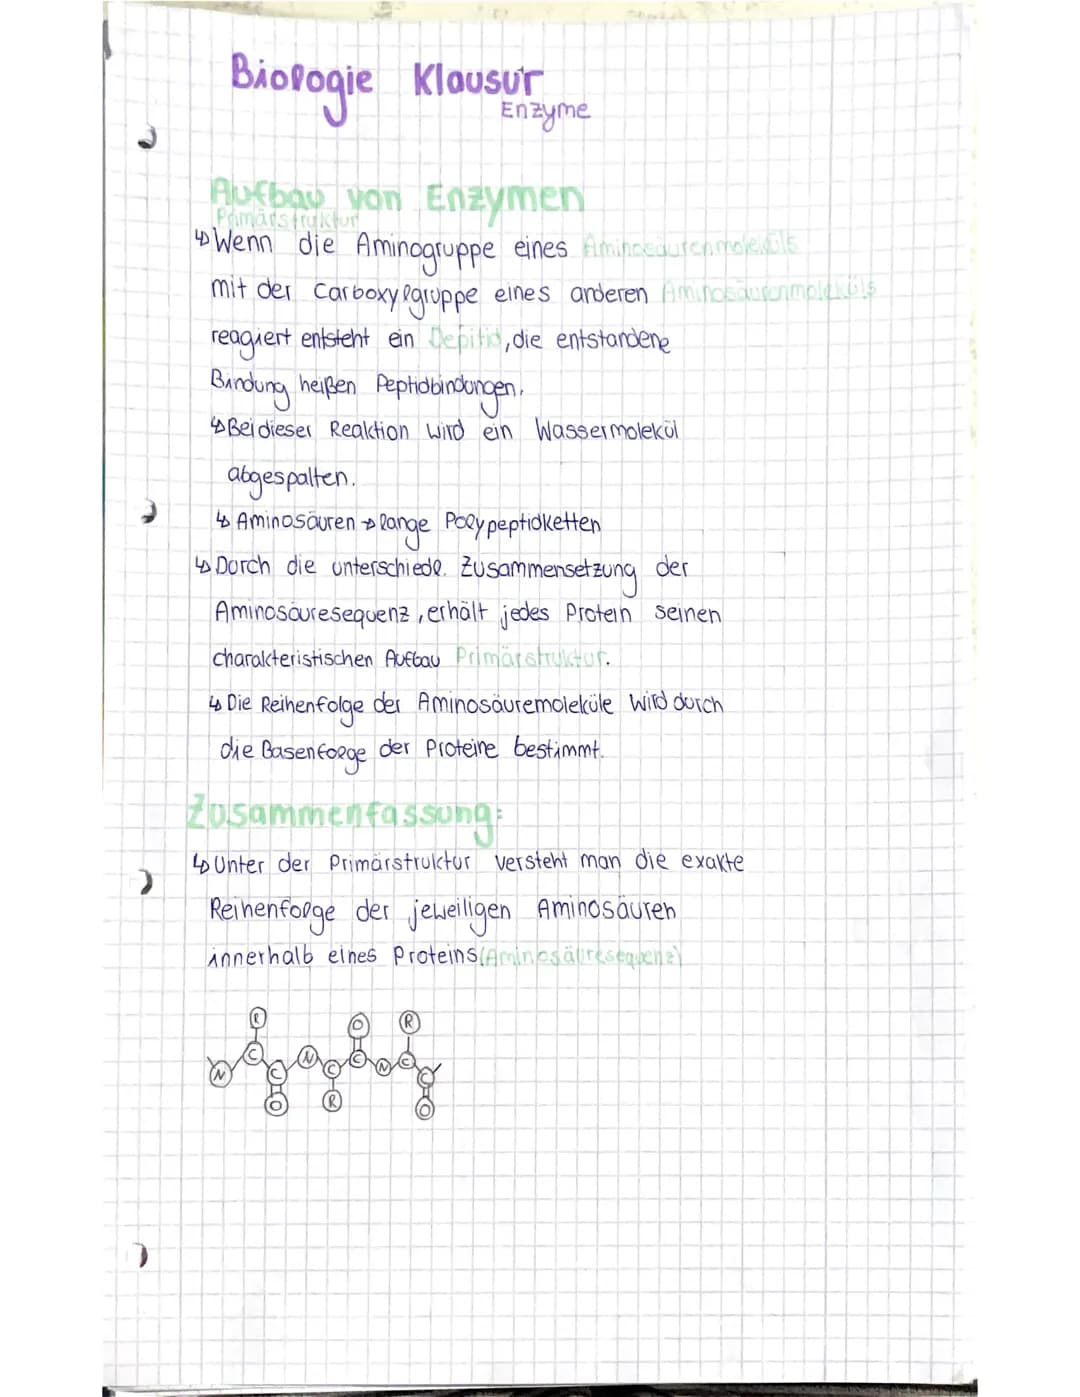 Biologie Klausur
Enzyme
Aufbau von Enzymen
Primärstruktur
↳ Wenn die Aminogruppe eines Aminosäurenmoleküls
mit der Carboxylgruppe eines anderen Aminosäurenmoleküls
reagiert entsteht ein Depitid, die entstandene
Bindung heißen Peptidbindungen.
↳ Bei dieser Reaktion wird ein Wassermolekül
abgespalten.
↳ Aminosäuren → lange Polypeptidketten
↳ Durch die unterschiedl. Zusammensetzung der
Aminosäuresequenz, erhält jedes Protein seinen
charakteristischen Aufbau Primärstruktur.
↳ Die Reihenfolge der Aminosäuremoleküle wird durch
die Basenfolge der Proteine bestimmt.
Zusammenfassung:
↳ Unter der Primärstruktur versteht man die exakte
Reihenfolge der jeweiligen Aminosäuren
innerhalb eines Proteins (Aminosäuresequenz)
R O R
N C C N C C N C C
O R O